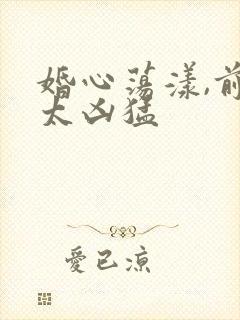 婚心荡漾,前
太凶猛
愛已凉